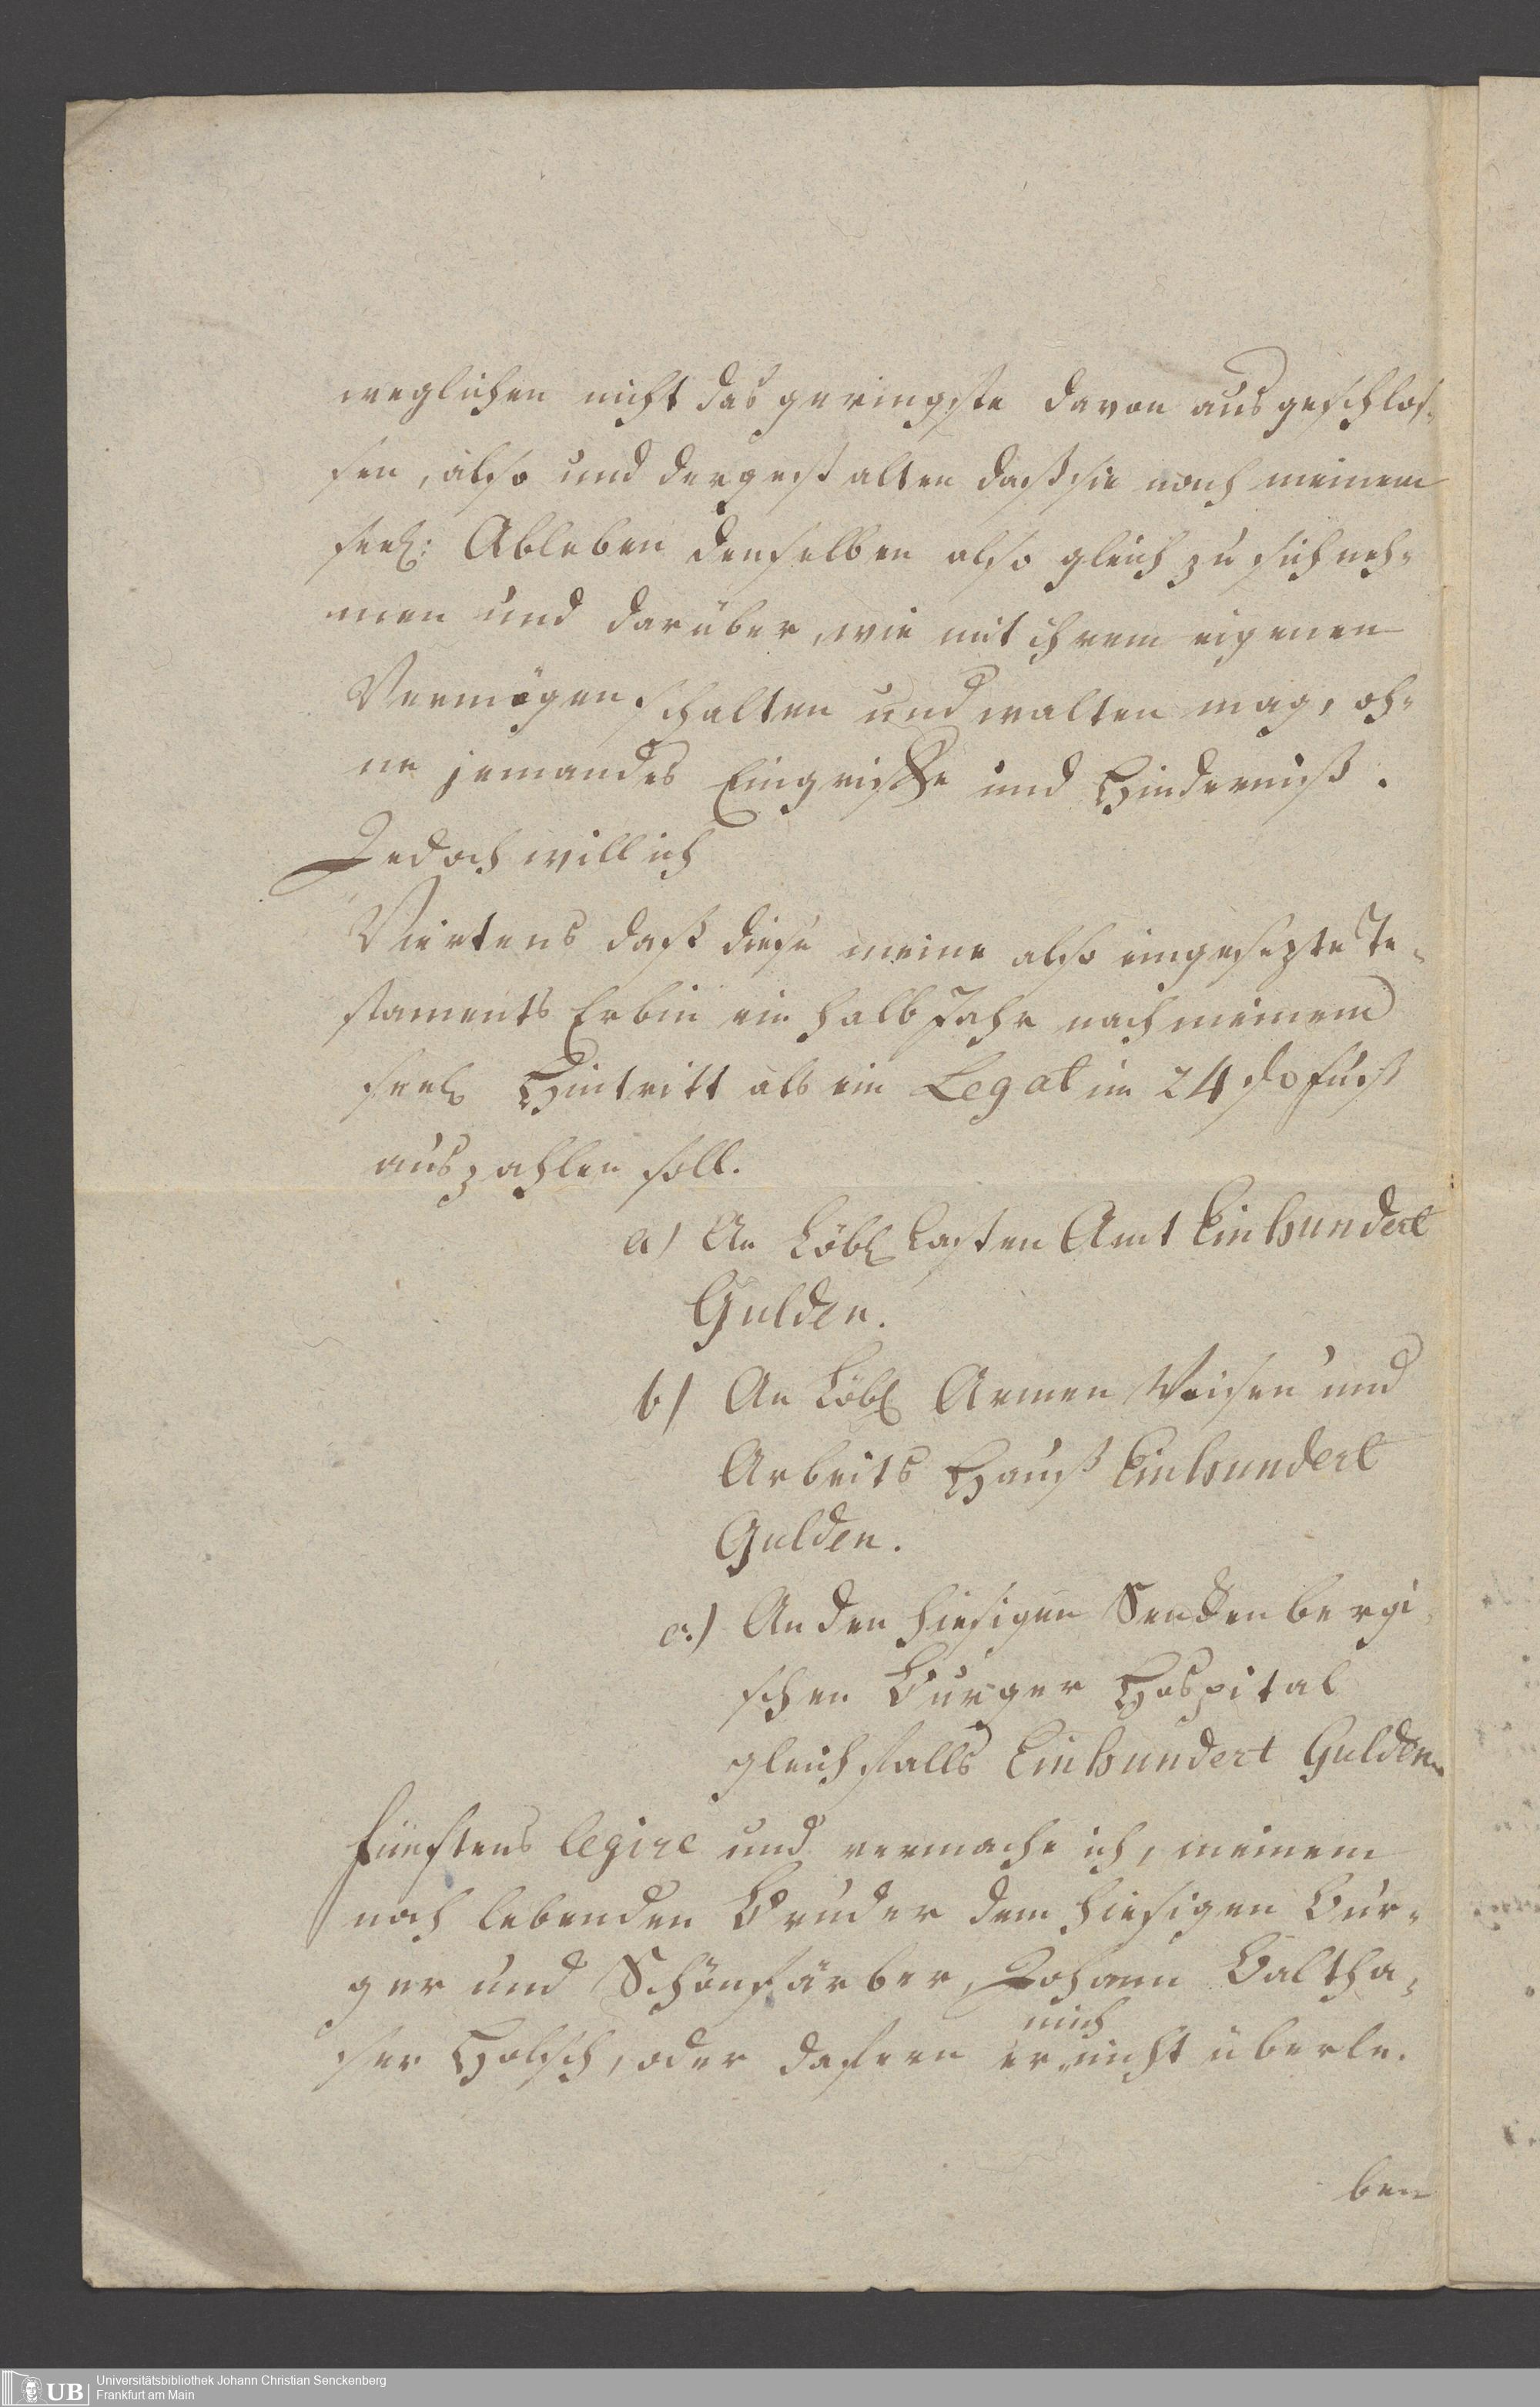 weglichen nicht das geringste davon ausgeschlos¬
sen, also und dergestalten daß sie nach meinem
seel: Ableben denselben also gleich zu sich neh¬
men und darüber, wie mit ihrem eigenen
Vermögen schalten und walten mag, oh¬
ne jemandes Eingriffe und Hinderniß.
Jedoch will ich
Viertens daß diese meine also eingesezte Te¬
staments Erbin ein halb Jahr nach meinem
seel Hintritt als ein Legat im 24 fl fuß
auszahlen soll.
a) An Löbl Casten Amt Einhundert
Gulden.
b) An Löbl Armen Waisen und
Arbeits Hauß Einhundert
Gulden.
c.) An den hiesigen Senckenbergi
schen Burger Hospital
gleichfalls Einhundert Gulden.
Fünftens legire und vermache ich, meinem
noch lebenden Bruder dem hiesigen Bur¬
ger und Schönfärber, Johann Baltha¬
mich
ser Holsch, oder dafern er nicht überle.
ben
Universitätsbibliothek Johann Christian Senckenberg
UB
Frankfurt am Main